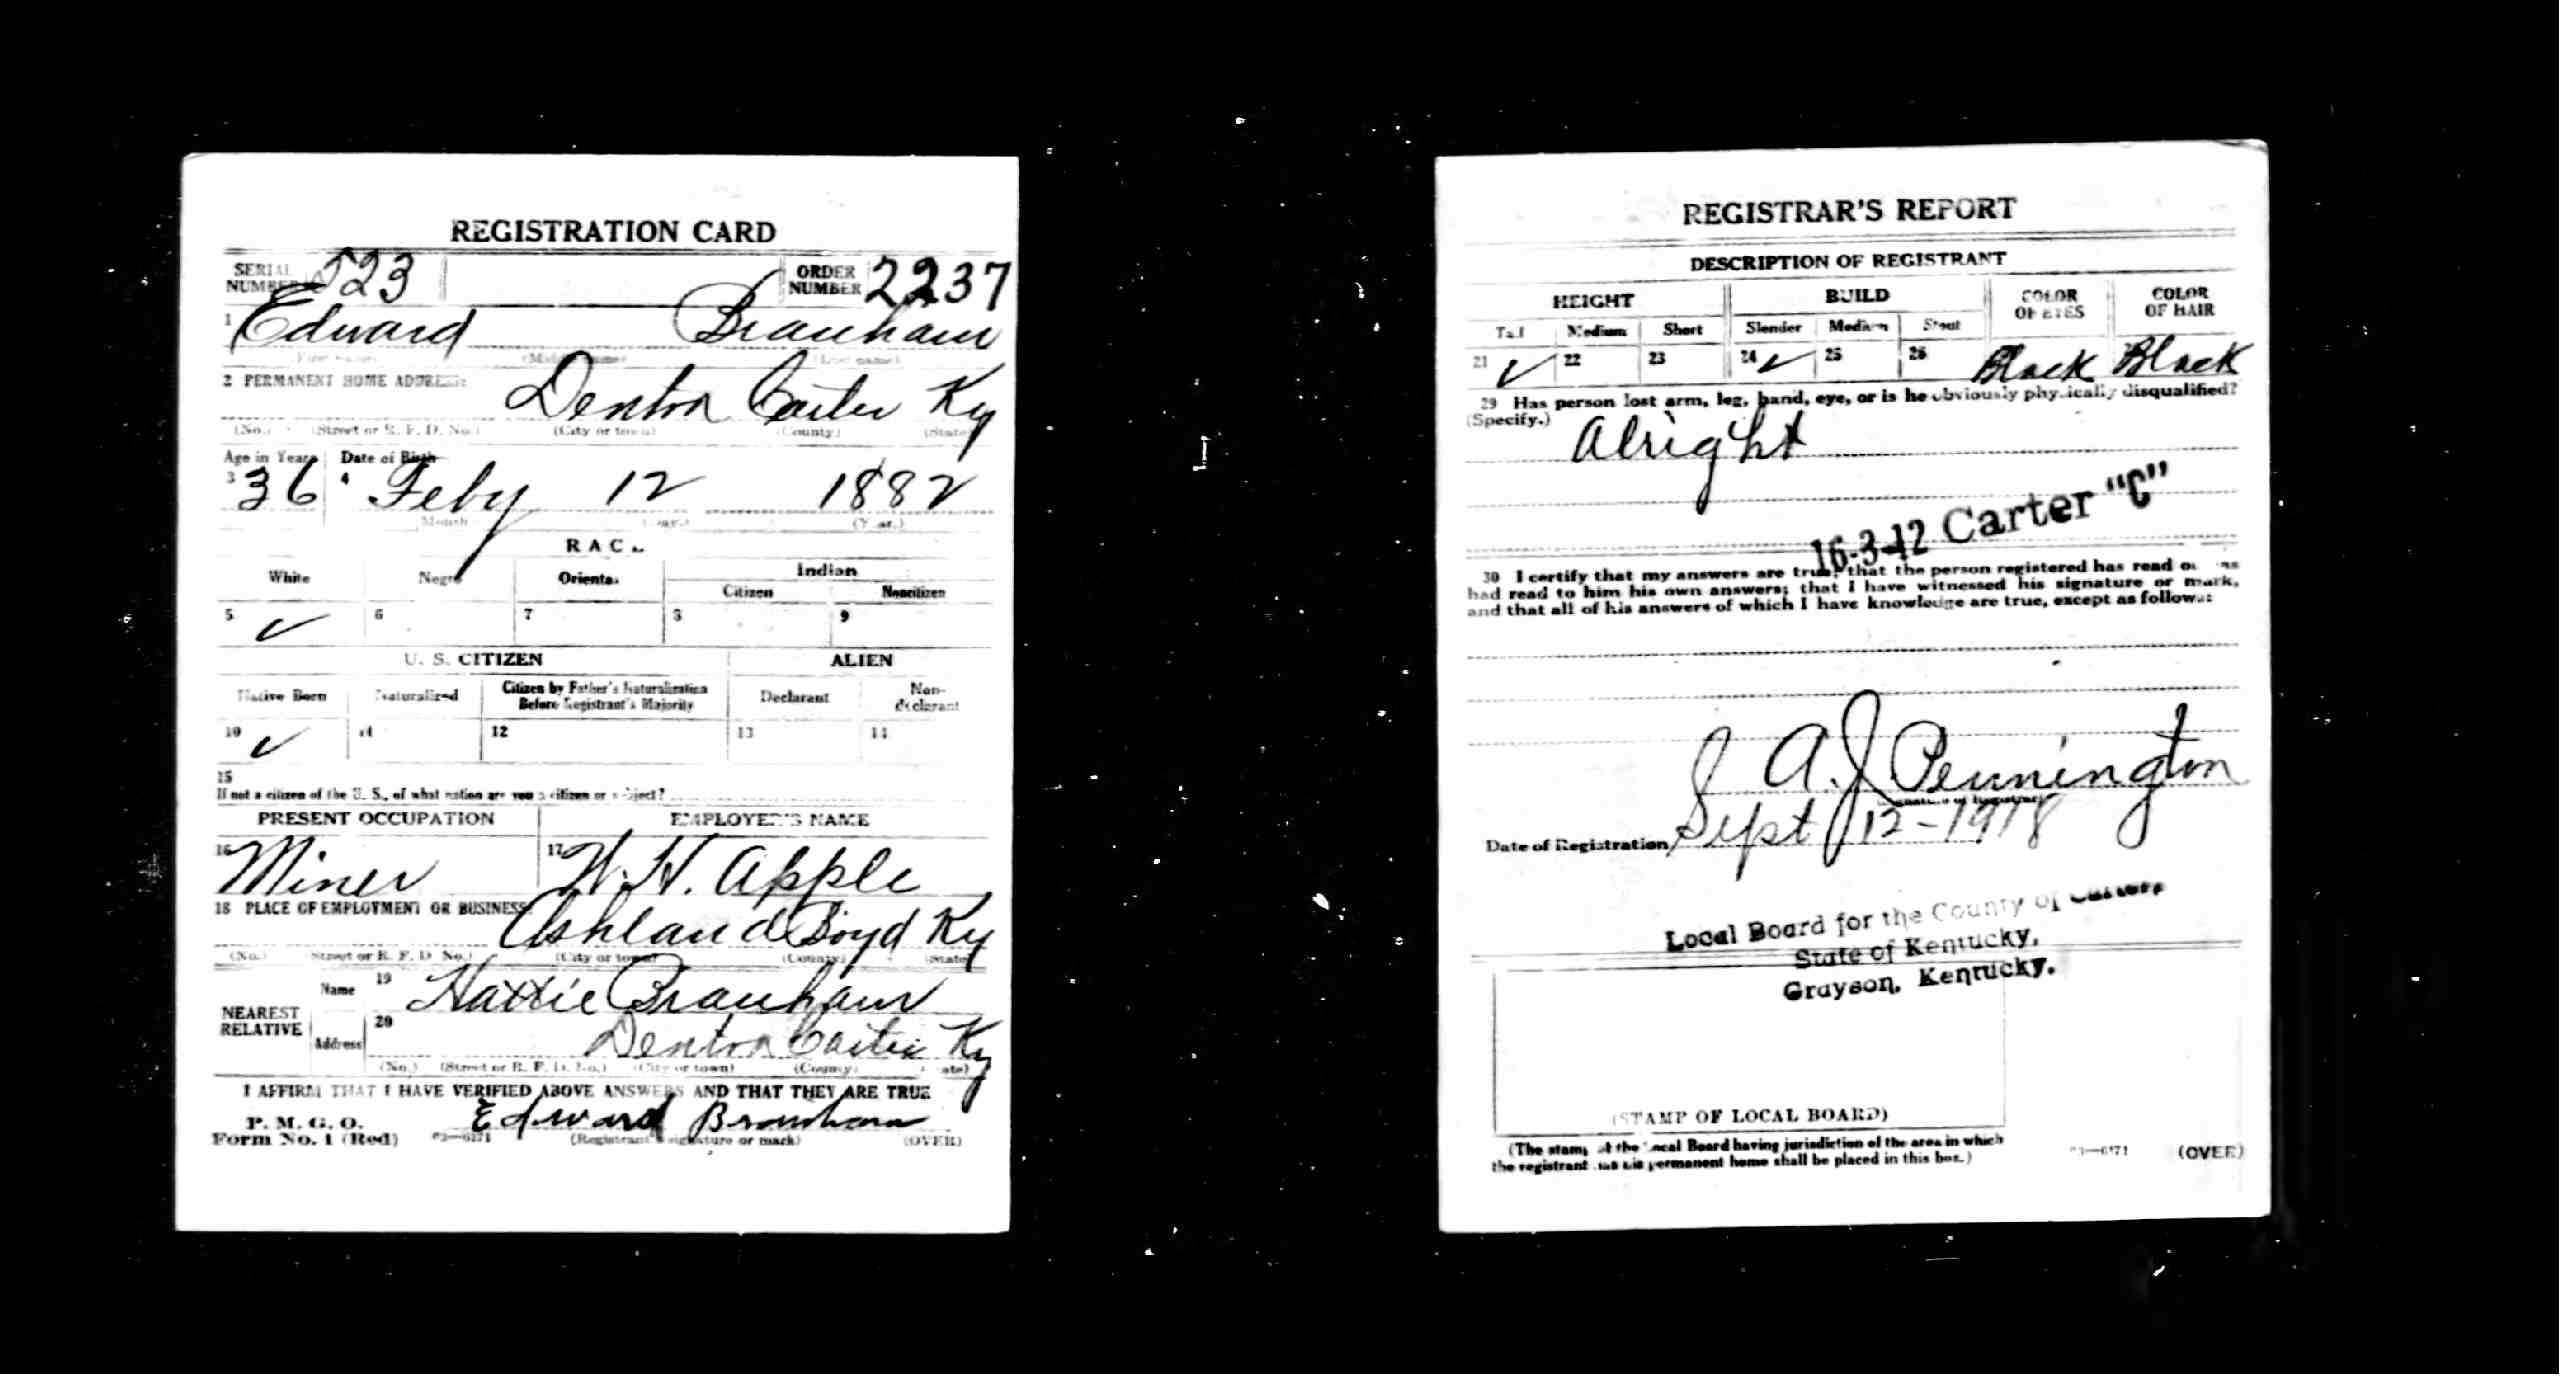 REGISTRATION CARD
SERIAL NUMBER 523 ORDER NUMBER 2237
1 Edward Branham
(Middle name) (Last name)
2 PERMANENT HOME ADDRESS:
Denton Carter Ky
(No.) (Street or R. F. D. No.) (City or town) (County) (State)
Age in Years Date of Birth
3 36 4 Feby 12 1882
(Month) (Day.) (Year.)
RACE
White Negro Oriental Indian
Citizen Noncitizen
5 ✓ 6 7 8 9
U. S. CITIZEN ALIEN
Native Born Naturalized Citizen by Father's Naturalization Before Registrant's Majority Declarant Non-declarant
10 ✓ 11 12 13 14
15
If not a citizen of the U. S., of what nation are you a citizen or subject?
PRESENT OCCUPATION EMPLOYER'S NAME
16 Miner 17 W. H. Apple
18 PLACE OF EMPLOYMENT OR BUSINESS:
Ashland Boyd Ky
(No.) (Street or R. F. D. No.) (City or town) (County) (State)
NEAREST RELATIVE Name 19 Hattie Branham
Address 20 Denton Carter Ky
(No.) (Street or R. F. D. No.) (City or town) (County) (State)
I AFFIRM THAT I HAVE VERIFIED ABOVE ANSWERS AND THAT THEY ARE TRUE
P. M. G. O.
Form No. 1 (Red) Edward Branham
(Registrant's signature or mark) (OVER)
REGISTRAR'S REPORT
DESCRIPTION OF REGISTRANT
HEIGHT BUILD COLOR OF EYES COLOR OF HAIR
Tall Medium Short Slender Medium Stout
21 ✓ 22 23 24 ✓ 25 26 Black Black
29 Has person lost arm, leg, hand, eye, or is he obviously physically disqualified?
(Specify.) Alright
16-3-12 Carter "C"
30 I certify that my answers are true; that the person registered has read or has
had read to him his own answers; that I have witnessed his signature or mark,
and that all of his answers of which I have knowledge are true, except as follows:
A. J. Pennington
(Signature of Registrar)
Date of Registration Sept 12-1918
Local Board for the County of Carter,
State of Kentucky,
Grayson, Kentucky.
(STAMP OF LOCAL BOARD)
(The stamp of the Local Board having jurisdiction of the area in which
the registrant has his permanent home shall be placed in this box.)
(OVER)